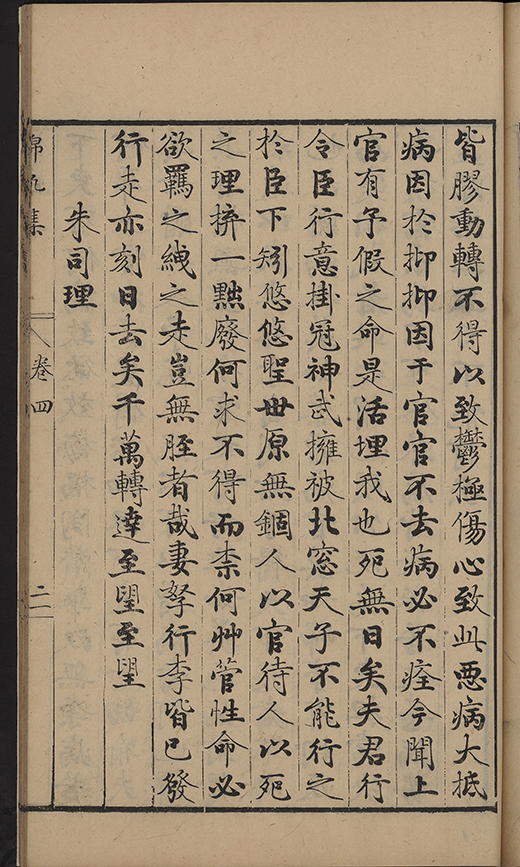 皆膠動轉不得以致鬱極傷心致此惡病大抵
病因於抑抑因于官官不去病必不痊今聞上
官有予假之命是活埋我也死無日矣夫君行
令臣行意掛冠神武擁被北窓天子不能行之
於臣下矧悠悠聖世原無錮人以官待人以死
之理拚一黜廢何求不得而柰何艸菅性命必
欲羈之紲之走豈無脛者哉妻孥行李皆已發
行走亦刻日去矣千萬轉達至望至望
朱司理
錦帆集
卷四
二